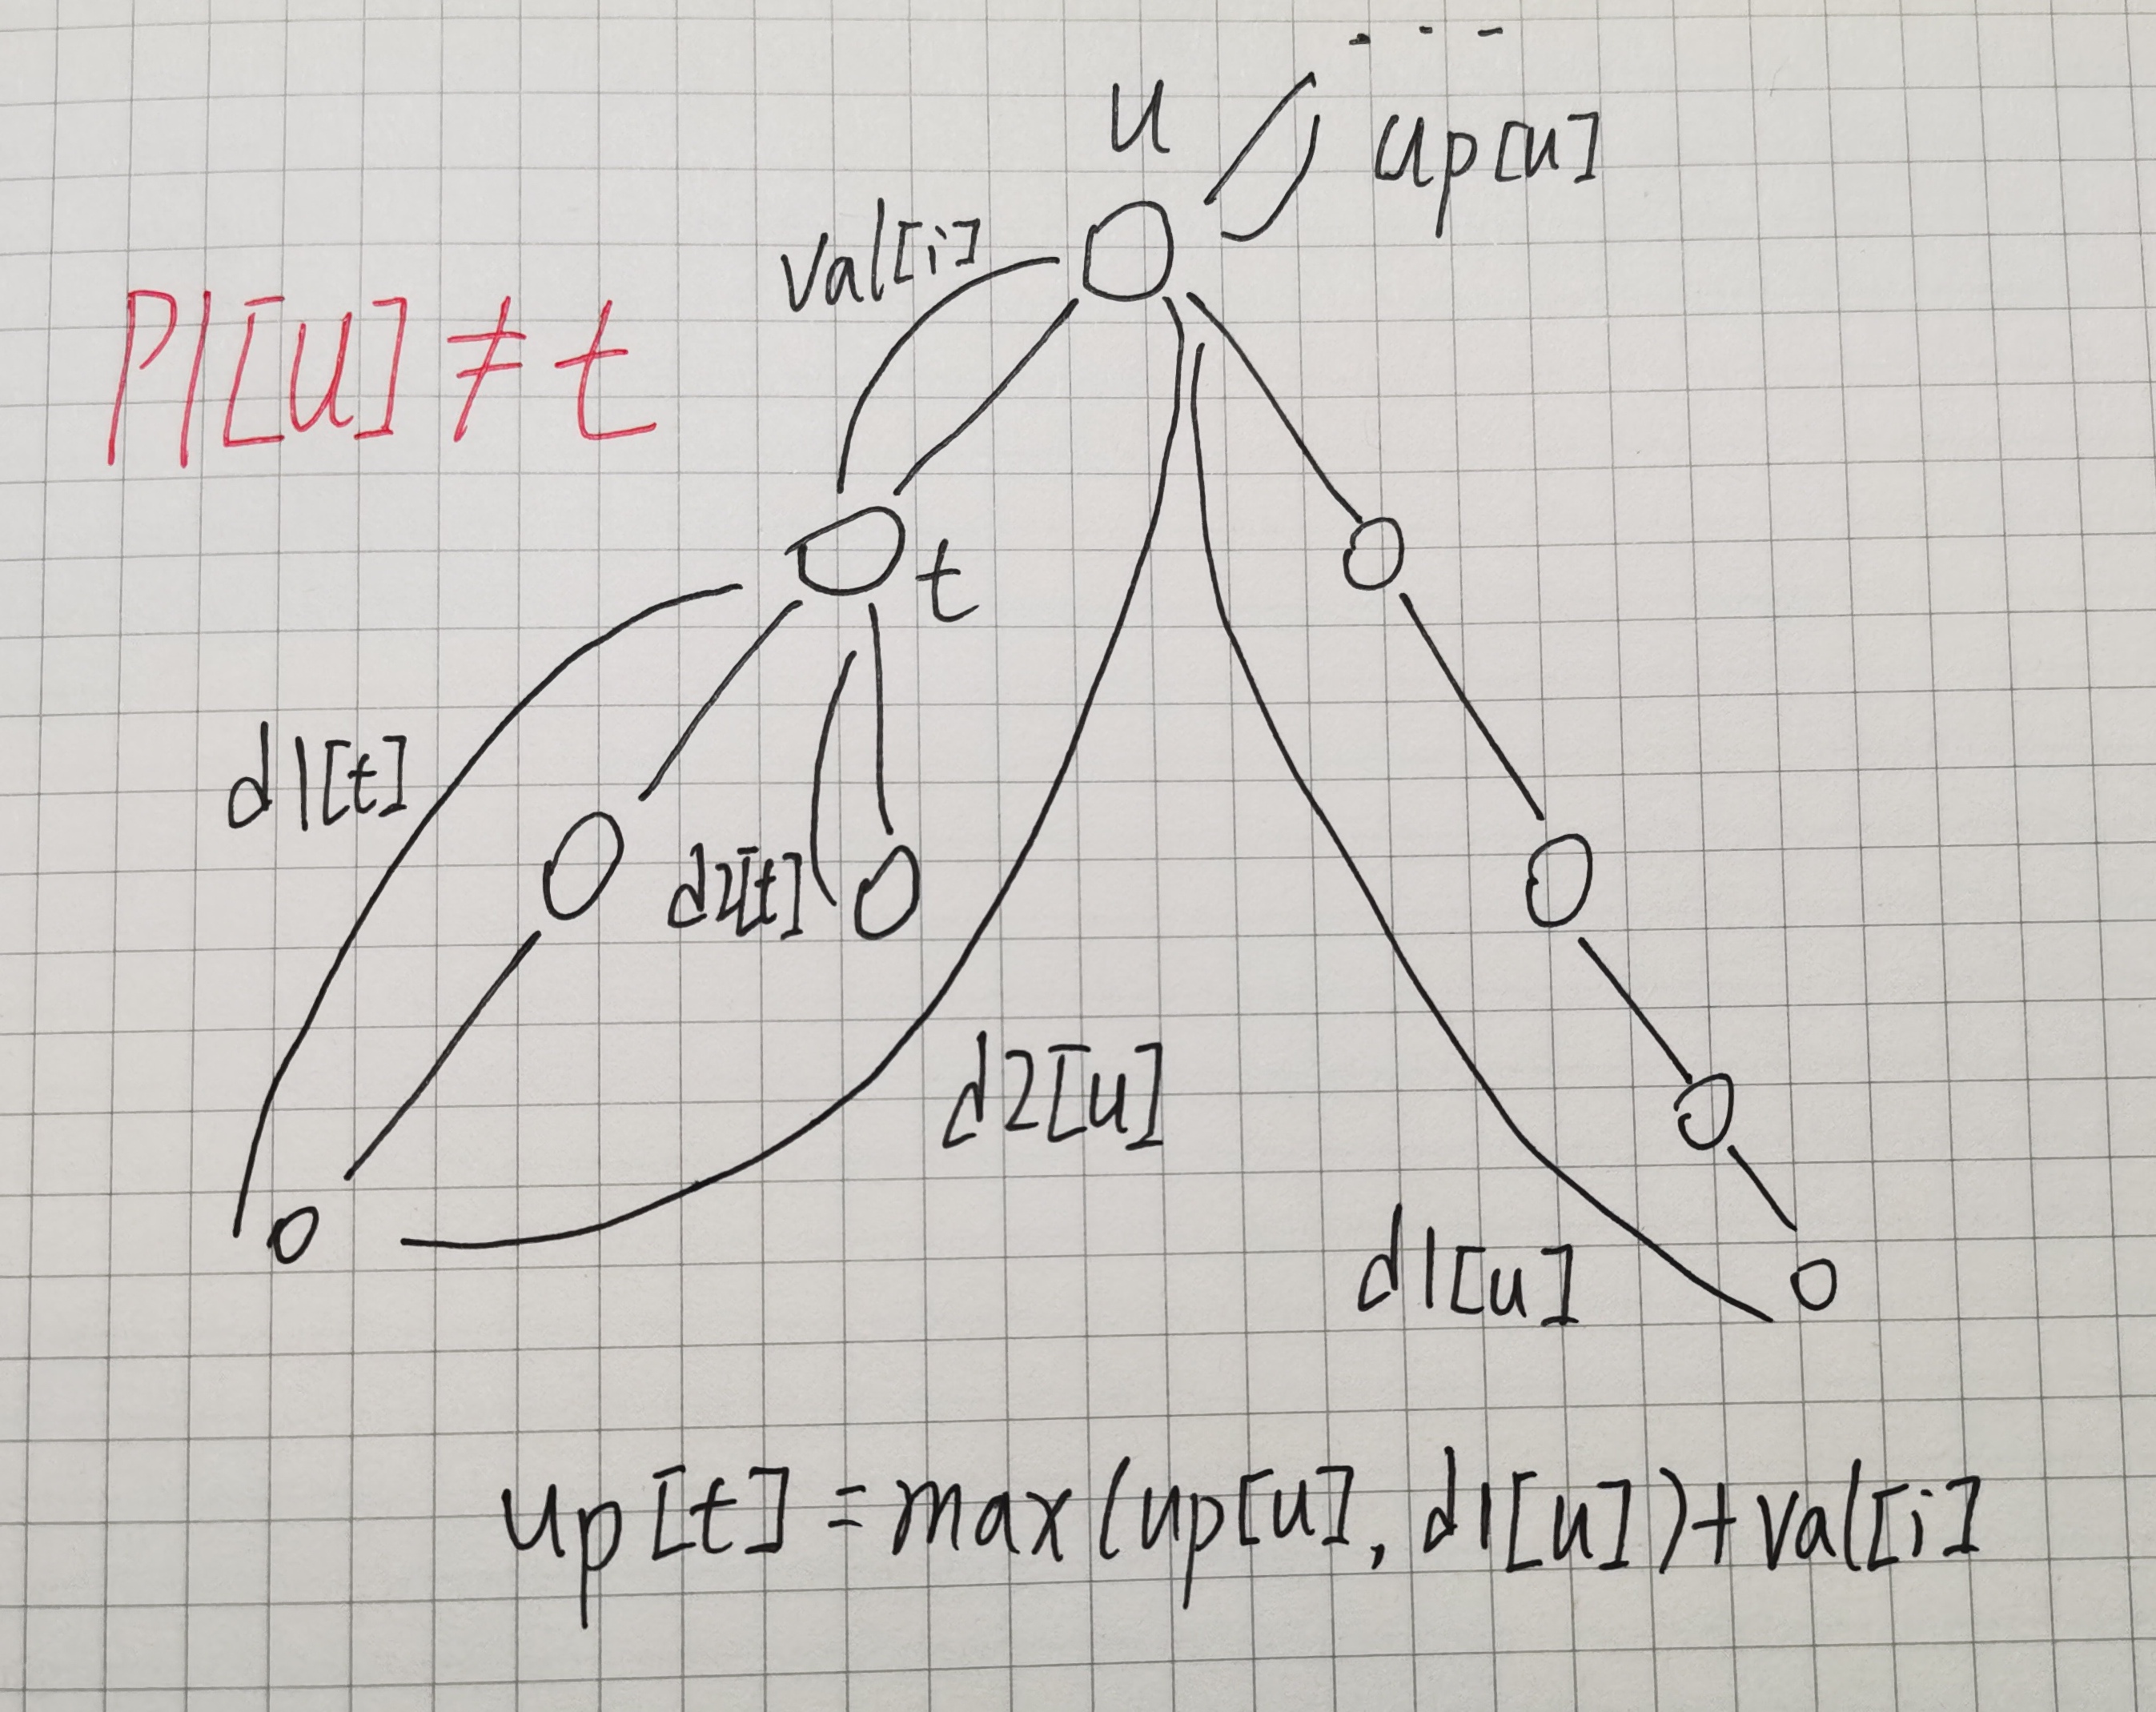 ...
u
up[u]
val[i]
p1[u] ≠ t
t
d1[t]
d2[t]
d2[u]
d1[u]
up[t] = max(up[u], d1[u]) + val[i]